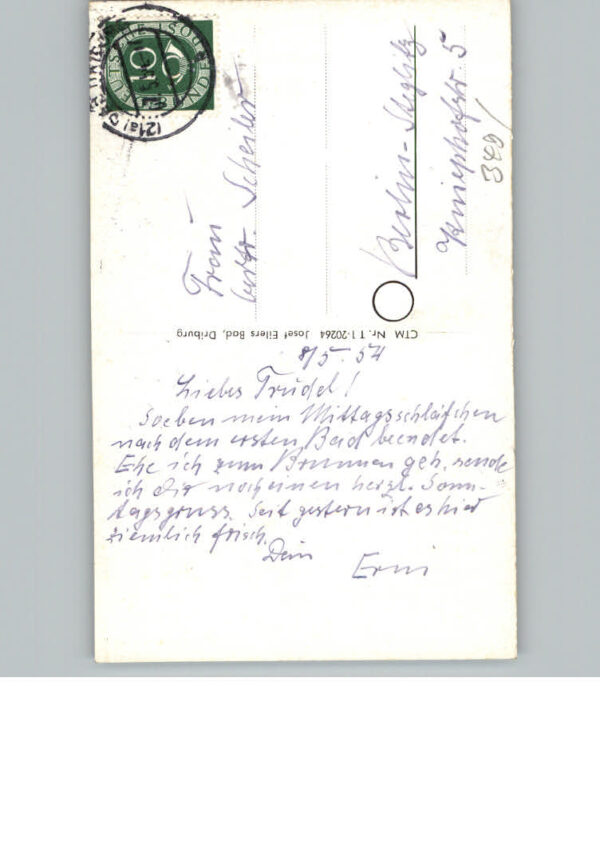 8/5. 54
Liebes Trudel!
Soeben mein Mittagsschläfchen
nach dem ersten Bad beendet.
Ehe ich zum Brunnen geh, sende
ich Dir noch einen herzl. Sonn-
tagsgruss. Seit gestern ist es hier
ziemlich frisch.
Dein
Erni
Frau
Gertr. Scheiler
Berlin-Steglitz
Kniephofstr. 5
349/
CTM Nr. T1-20264 Josef Eilers Bad, Driburg
DEUTSCHE BUNDESPOST
10
(21a)